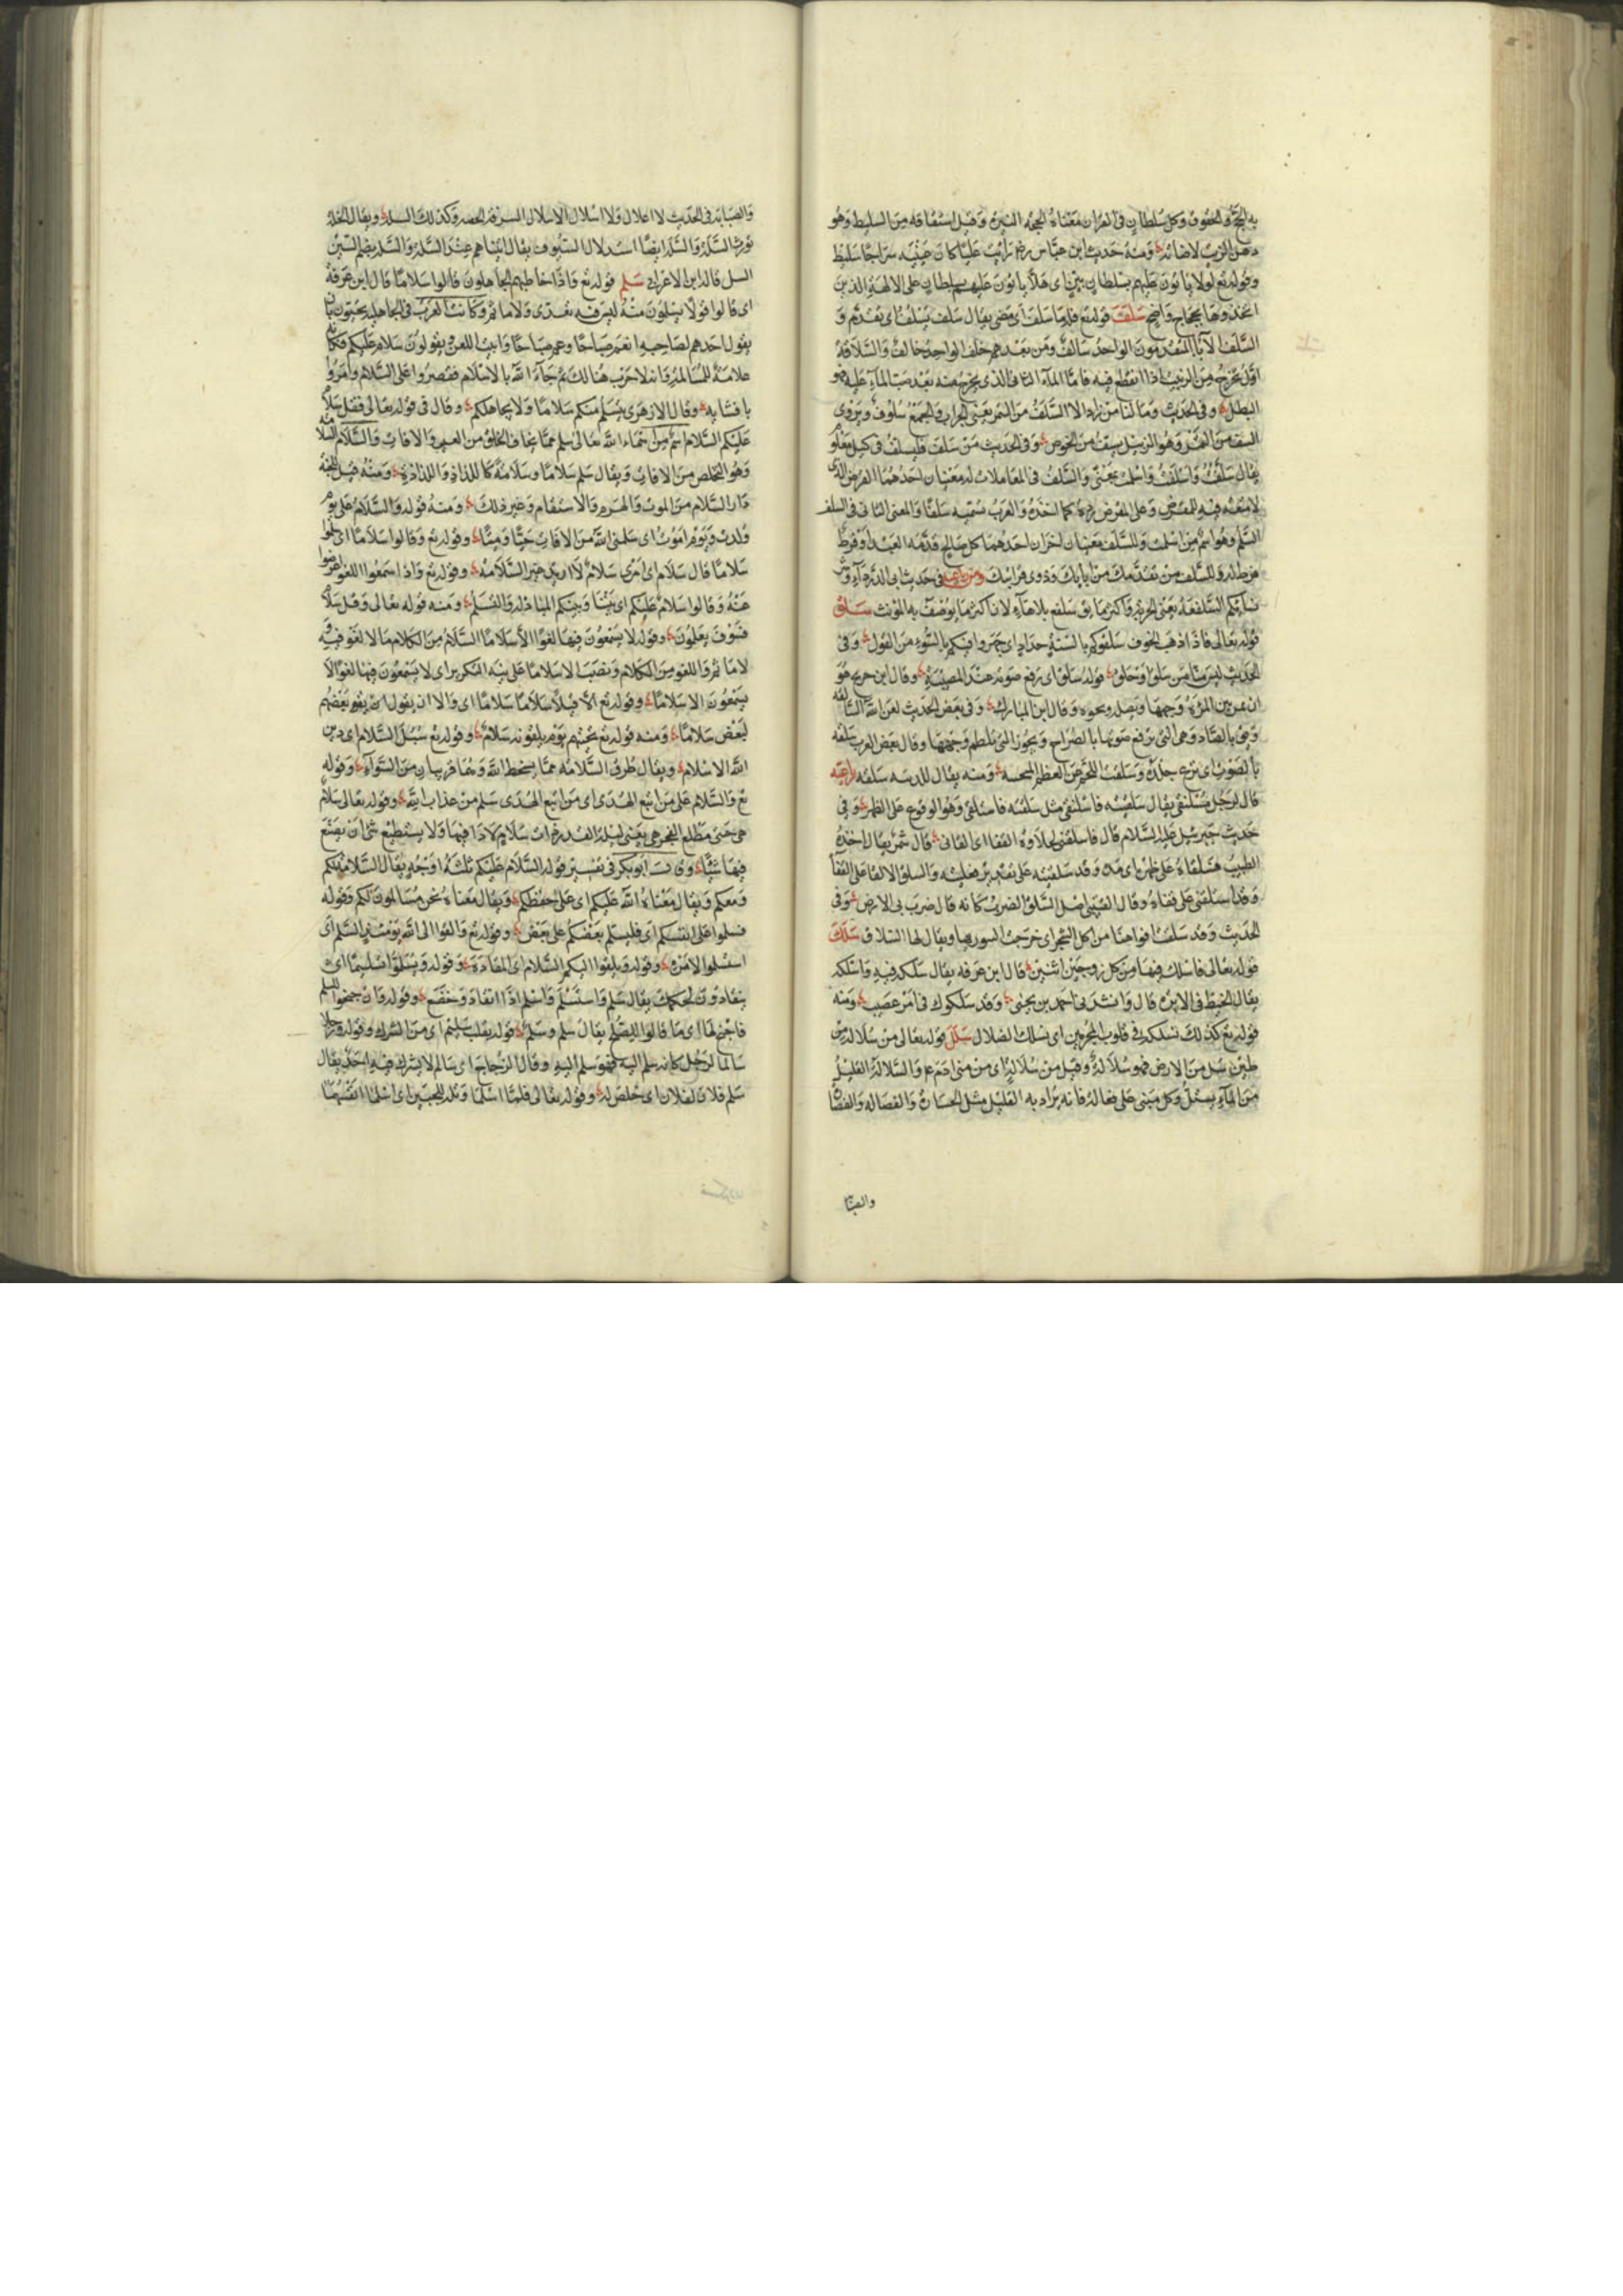 به الحجة والحقوق وكل سلطان في القران معناه الحجة النيرة وقيل اشتقاقه من السليط وهو
دهن الزيت لاضائته ومنه حديث ابن عباس رضه رايت عليا كان عينيه سراجا سليط
وقوله تع لولا ياتون عليهم بسلطان بين اى هلا ياتون عليهم بسلطان على الالهة الذين
اتخذوها بحجاج واضح سلف قوله تع فله ما سلف اى مضى يقال سلف يسلف اى تقدم و
السلف الآباء المتقدمون الواحد سالف ومن بعدهم خلف الواحد خالف والسلافة
اول ما يخرج من الزبيب اذا انقطع فيه فاما الماء الثانى الذى يخرج منه بعد صب الماء عليه فهو
البطل وفي الحديث وما لنا من زاد الا السلف من التمر يعنى الجراب والجمع سلوف ويروى
السف من التمر وهو الزبيل يسف من الخوص وفى الحديث من سلف فليسلف فى كيل معلوم
يقال سلفت واسلفت واسلمت بمعنى والسلف فى المعاملات له معنيان احدهما القرض الذى
لا منفعة فيه للمقرض وعلى المقرض رده كما اخذه والعرب تسميه سلفا والمعنى الثانى فى السلف
السلم وهو اسم من اسلمت وللسلف معنيان اخران احدهما كل صالح قدمه العبد او فرط
فرط له والسلف من تقدمك من ابايك وذوى قرابتك ومن رباعيه فى حديث ابى الدرداء وشر
نسائكم السلفعة يعنى الجرئة واكثر ما يق سلفع بلا هاء لان اكثر ما يوصف به المونث سلق
قوله تعالى فاذا ذهب الخوف سلقوكم بالسنة حداد اى جهروا فيكم بالسوء من القول وفى
الحديث ليس منا من سلق او حلق قوله سلق اى رفع صوته عند المصيبة وقال ابن جريج هو
ان تمرش المرءة وجهها وتصله ونحوه وقال ابن المبارك وفى بعض الحديث لعن الله السالقة
ويق بالصاد وهى التى ترفع صوتها بالصراخ ويجوز التى تلطم وجهها وقال بعض العرب سلقه
بالصوت اى نزع جلده وسلقت اللحم عن العظم ومنه يقال للذئبه سلقه رباعيه
قال لرجل مسلنقى يقال سلقيته فاسلنقى مثل سلقته فاستلقى وهو الوقوع على الظهر وفى
حديث جبرئيل عليه السلام قال فاسلقنى لحلاوة القفا اى القانى قال شمر يقال اخذه
الطبيب فسلقاه على ظهره اى مده وقد سلقيته على تقدير فعليته والسلق الالقا على القفا
وقد اسلنقى على قفاه وقال القتيبى اصل السلق الضرب كانه قال ضرب بى الارض وفى
الحديث وقد سلقت افواهنا من اكل الشجر اى خرجت البثور بها ويقال لها السلاق سلك
قوله تعالى فاسلك فيها من كل زوجين اثنين قال ابن عرفه يقال سلكه فيه واسلكه
يقال الخيط فى الابرة قال وانشدنى احمد بن يحيى وقد سلكوك فى امر عصيب ومنه
قوله تع كذلك نسلكه فى قلوب المجرمين اى نسلك الضلال سلل قوله تعالى من سلالة من
طين سل من الارض فهو سلالة وقيل من سلالة اى من منى ادم ع والسلالة القليل
من الماء يسل وكل مبنى على فعالة فانه يراد به القليل مثل الحسارة والفصالة والفضالة
والصبا
والصبابة فى الحديث لا اغلال ولا اسلال الاسلال السرقة الخفية وكذلك السلة ويقال الخلة
تورث السلة والسلة ايضا استلال السيوف يقال اتيناهم عند السلة والسلة بضم السين
السل قاله ابن الاعرابى سلم قوله تع واذا خاطبهم الجاهلون قالوا سلاما قال ابن عرفة
اى قالوا قولا يسلمون منه ليس فيه تعدى ولا ماثم وكانت العرب فى الجاهلية يحيون بان
يقول احدهم لصاحبه انعم صباحا وعم صباحا وابيت اللعن ويقولون سلام عليكم فكانه
علامة للمسالمة وانه لا حرب هنالك ثم جاء الله بالاسلام فقصروا على السلام وامروا
بافشايه وقال الازهرى نتسلم منكم سلاما ولا نجاهلكم وقال فى قوله تعالى فقل سلام
عليكم السلام اسم من اسماء الله تعالى سلم مما يخاف الخلق من العيب والافات والسلام السلامة
وهو التخلص من الافات ويقال سلم سلاما وسلامة كما اللذاذ واللذاذة ومنه قيل للجنة
دار السلام من الموت والهرم والاسقام وغير ذلك ومنه قوله والسلام على يوم
ولدت ويوم اموت اى سلمنى الله من الافات حيا وميتا وقوله تع وقالوا سلاما اى سلموا
سلاما قال سلام اى امرى سلام لا اريد غير السلامة وقوله تع واذا سمعوا اللغو اعرضوا
عنه وقالوا سلام عليكم اى بيننا وبينكم المتاركة والتسلم ومنه قوله تعالى وقل سلام
فسوف يعلمون وقوله لا يسمعون فيها لغوا الا سلاما السلام من الكلام ما لا لغو فيه و
لا ماثم واللغو من الكلام ونصب الا سلاما على نية التكرير اى لا يسمعون فيها لغوا الا
يسمعون الا سلاما وقوله تع الا قيلا سلاما سلاما اى والا ان يقول اى يقو بعضهم
لبعض سلاما ومنه قوله تع تحيتهم يوم يلقونه سلام وقوله تع سبل السلام اى دين
الله الاسلام ويقال طرق السلامة مما يسخط الله وهما قريبان من السواء وقوله
تع والسلام على من اتبع الهدى اى من اتبع الهدى سلم من عذاب الله وقوله تعالى سلام
هى حتى مطلع الفجر هى يعنى ليلة القدر ذات سلام لا داء فيها ولا يستطيع شئ ان يصنع
فيها شيئا وقال ابو بكر فى تفسير قوله السلام عليكم ثلثة اوجه يقال السلامة لكم
ومعكم ويقال معناه الله عليكم اى على حفظكم ويقال معناه نحن مسالمون لكم وقوله
فسلموا على انفسكم اى فليسلم بعضكم على بعض وقوله تع والقوا الى الله يومئذ السلم اى
استسلموا لامره وقوله ويلقوا اليكم السلام اى المقادة وقوله ويسلموا تسليما اى
ينقادون لحكمك يقال سلم واستسلم واسلم اذا انقاد وخضع وقوله وان جنحوا للسلم
فاجنح لها اى ما قالوا للصلح يقال سلم وسلم قوله بقلب سليم اى من الشرك وقوله ورجلا
سالما لرجل كانه سلم اليه فهو سلم اليه وقال الزجاج اى سالم لا يشركه فيه احد يقال
سلم فلان لفلان اى خلص له وقوله تعالى فلما اسلما وتله للجبين اى اسلما انفسهما